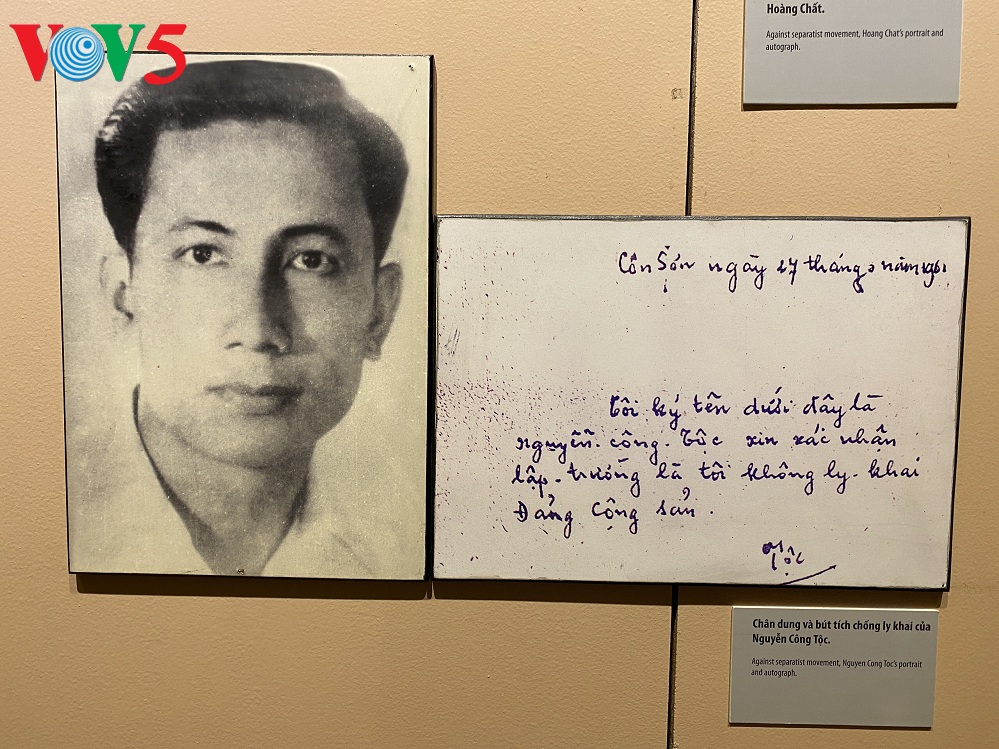 VOV5
Hoàng Chất.
Against separatist movement, Hoang Chat's portrait and
autograph.
Côn Sơn ngày 27 tháng 2 năm 1961
Tôi ký tên dưới đây là
nguyễn. công. Tộc xin xác nhận
lập. trường là tôi không ly. khai
Đảng Cộng sản.
Tộc
Chân dung và bút tích chống ly khai của
Nguyễn Công Tộc.
Against separatist movement, Nguyen Cong Toc's portrait
and autograph.